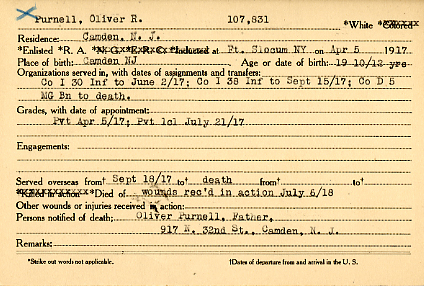 Purnell, Oliver R. 107,831 *White *Colored
Residence: Camden, N. J.
*Enlisted *R. A. *N. G. *E. R. C. *Inducted at Ft. Slocum NY on Apr 5 1917
Place of birth: Camden NJ Age or date of birth: 19 10/12 yrs
Organizations served in, with dates of assignments and transfers:
Co I 30 Inf to June 2/17; Co I 38 Inf to Sept 15/17; Co D 5
MG Bn to death.
Grades, with date of appointment:
Pvt Apr 5/17; Pvt 1cl July 21/17
Engagements:
Served overseas from† Sept 18/17 to† death from† to†
*Killed in action *Died of wounds rec'd in action July 6/18
Other wounds or injuries received in action:
Persons notified of death: Oliver Purnell, Father,
917 N. 32nd St., Camden, N. J.
Remarks:
*Strike out words not applicable. †Dates of departure from and arrival in the U. S.